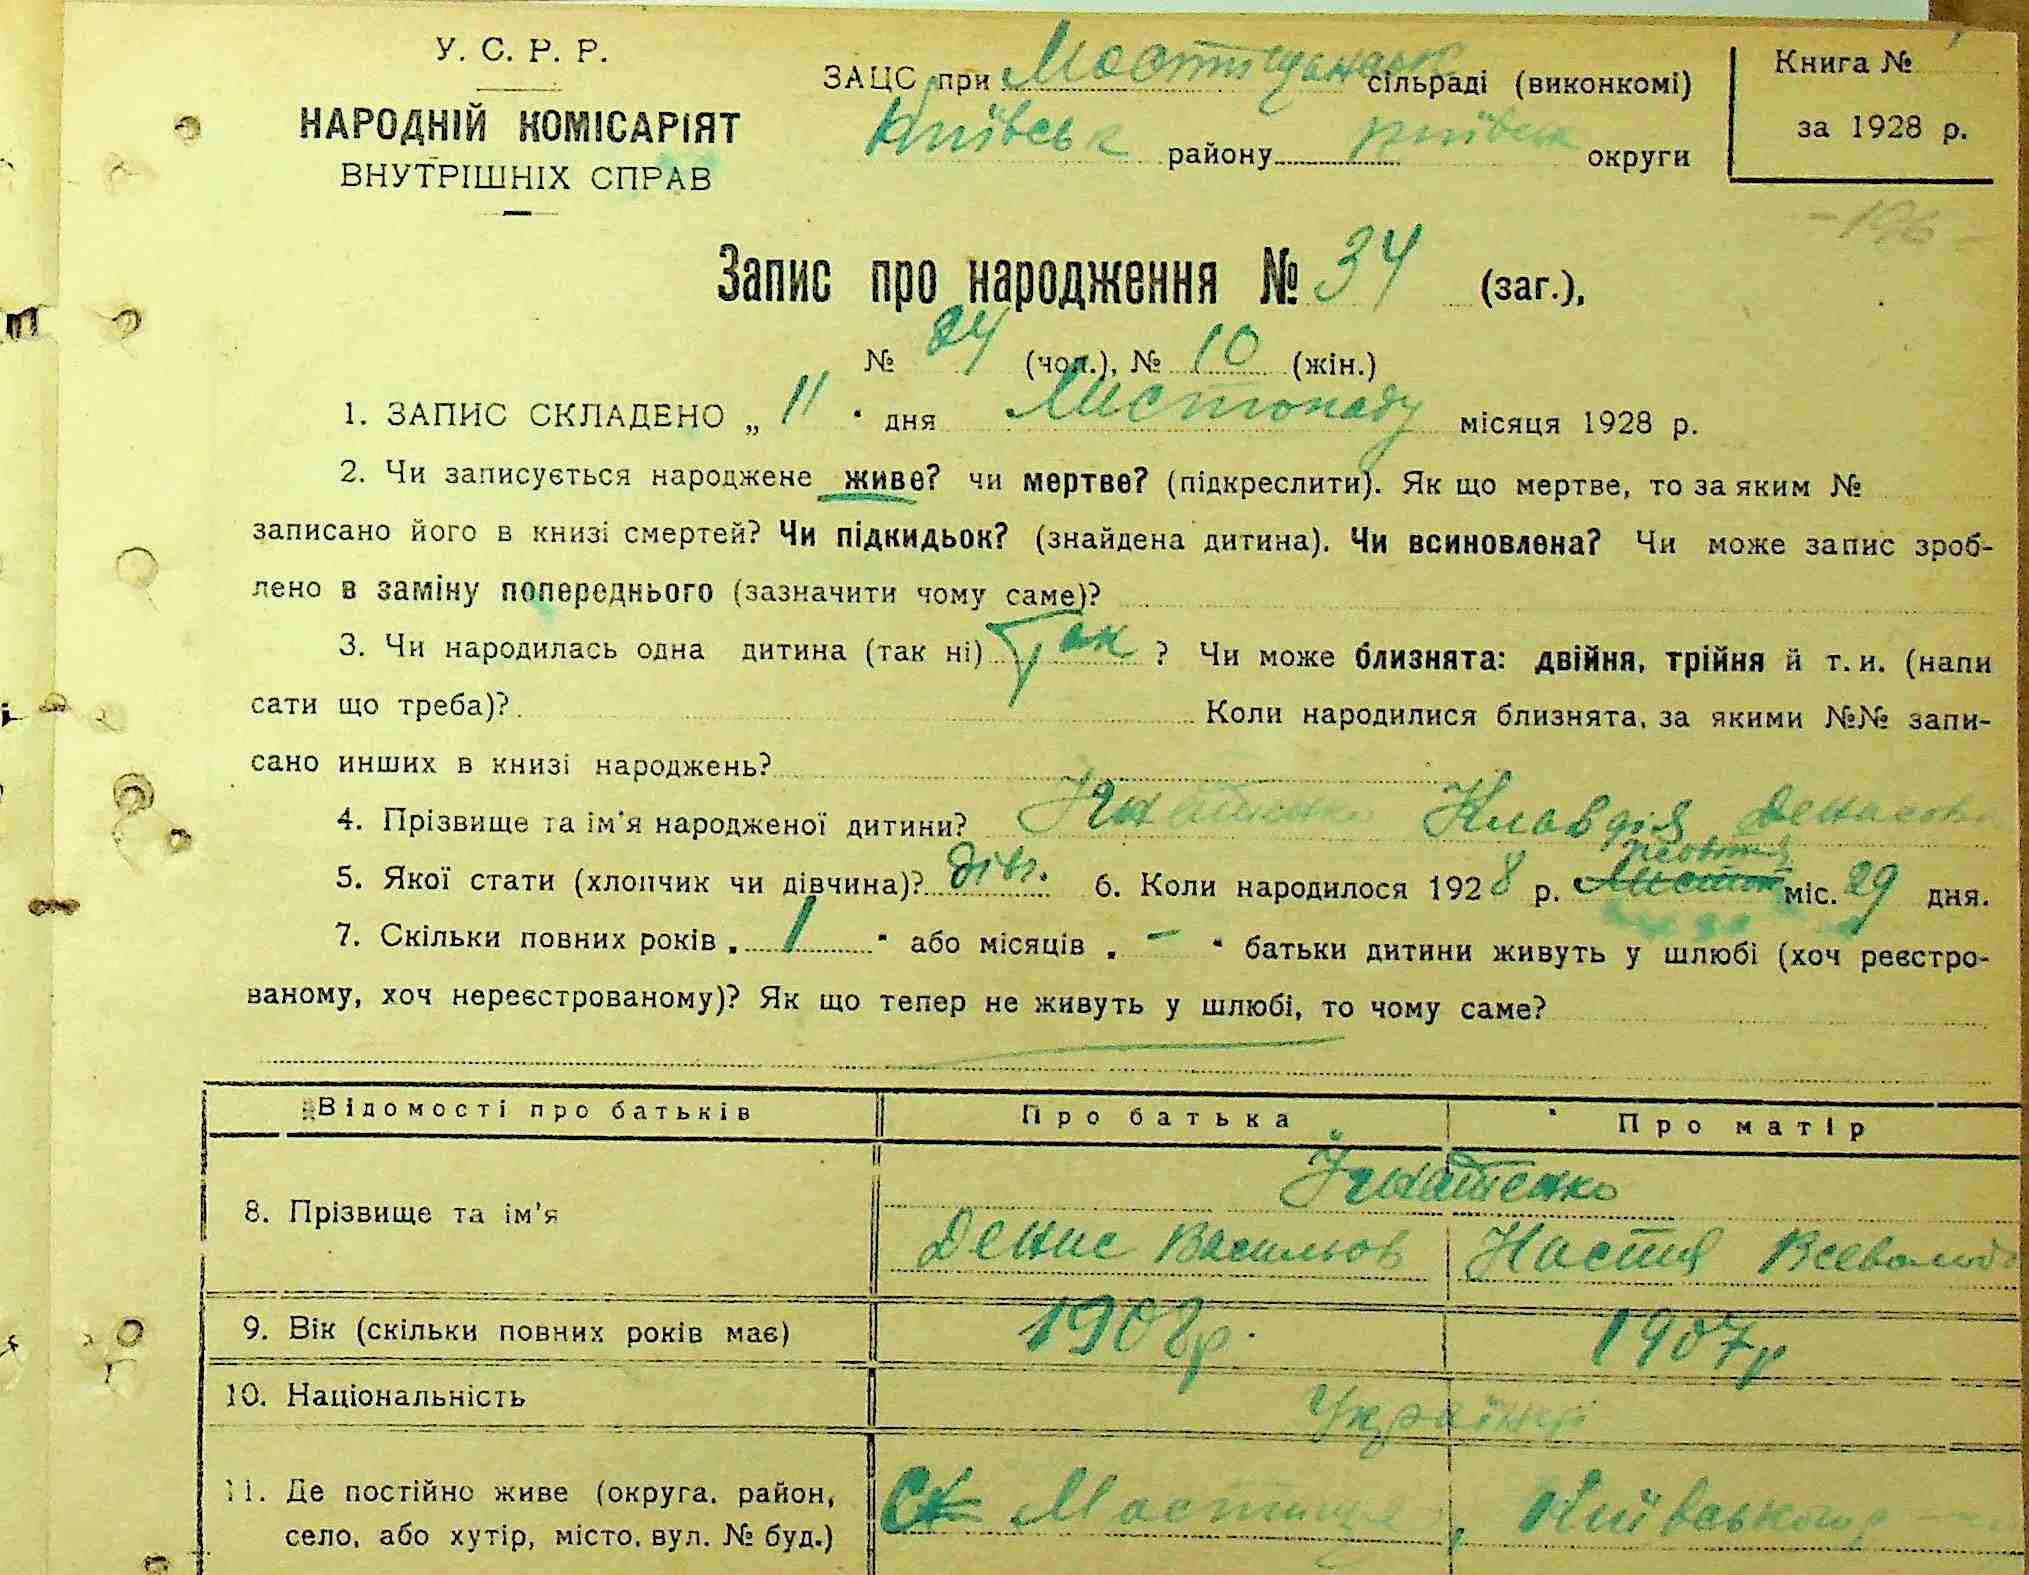 У. С. Р. Р.
НАРОДНІЙ КОМІСАРІЯТ
ВНУТРІШНІХ СПРАВ
ЗАЦС при Мостищанськ сільраді (виконкомі)
Київськ району Київськ округи
Книга №
за 1928 р.
-196-
Запис про народження № 34 (заг.),
№ 24 (чол.), № 10 (жін.)
1. ЗАПИС СКЛАДЕНО „ 11 " дня Листопаду місяця 1928 р.
2. Чи записується народжене живе? чи мертве? (підкреслити). Як що мертве, то за яким №
записано його в книзі смертей? Чи підкидьок? (знайдена дитина). Чи всиновлена? Чи може запис зроб-
лено в заміну попереднього (зазначити чому саме)?
3. Чи народилась одна дитина (так ні) Так ? Чи може близнята: двійня, трійня й т. и. (напи
сати що треба)? Коли народилися близнята, за якими №№ запи-
сано инших в книзі народжень?
4. Прізвище та ім'я народженої дитини? Ігнатенко Клавдія Денисова
5. Якої стати (хлопчик чи дівчина)? дівч. 6. Коли народилося 1928 р. жовтня міс. 29 дня.
7. Скільки повних років „ 1 " або місяців „ - " батьки дитини живуть у шлюбі (хоч реєстро-
ваному, хоч нереєстрованому)? Як що тепер не живуть у шлюбі, то чому саме?
Відомості про батьків Про батька Про матір
8. Прізвище та ім'я Ігнатенко
Денис Васильов Настя Всеволод
9. Вік (скільки повних років має) 1908р. 1907р
10. Національність Українці
11. Де постійно живе (округа, район,
село, або хутір, місто, вул. № буд.) Мостище, Київського